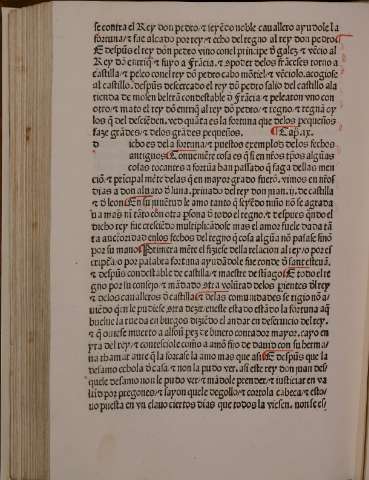 se contra el Rey don pedro ⁊ seyẽdo noble cauallero ayudole la
fortuna/⁊ fue alçado por rey ⁊ echo del regno al rey don pedro
E despues el rey dõ pedro vino conel principe ð galez ⁊ vẽcio al
Rey dõ enriq̃ ⁊ fuyo a frãcia. ⁊ poder delos frãceses torno a
castilla ⁊ peleo conel rey dõ pedro cabo mõtiel ⁊ vẽciolo. acogiose
al castillo. despues desercado el rey dõ pedro salio del castillo ala
tienda de mosen beltrã condestable ð frãcia ⁊ pelearon vno con
otro/⁊ mato el rey dõ enriq̃ al rey dõ pedro ⁊ regno ⁊ regnã oy
los q̃ del desciẽden. ved quãta es la fortuna que delos pequeños
faze grãdes/⁊ delos grãdes pequeños. Cap. ix.
d icho es dela fortuna/⁊ puestos exemplos delos fechos
antiguos Conuiene cosa es q̃ en nr̃os tpõs algũas
cosas tocantes a fortũa han passado q̃ faga dellas men
ciõ/⁊ principal mẽte delas q̃ en mayor grado fuerõ. vimos en nr̃os
dias a don aluaro ð luna. priuado del rey don juan .ij. de castilla
⁊ ð leon En su juuẽtud le amo tanto q̃ seyẽdo niño nõ se agrada
ua mas ni tãto cõn otra psona ð todo el regno/⁊ despues qndo el
dicho rey fue cresciẽdo multiplicãdole mas el amor fuele dada tã
ta auctoridad enlos fechos del regno q̃ cosa algũa nõ passase sinõ
por su mano Primera mẽte el fiziese dela relacion al rey/o por es
cripẽa/o por palabra fortuna ayudãdole fue conde ð santesteuã.
⁊ despues condestable de castilla/⁊ maestre de stiago E todo el re
gno por su consejo ⁊ mãdado otra volũtad delos parientes ðl rey
⁊ delos caualleros ð castilla/⁊ delas comunidades se rigio nõ a
uiẽdo qen le pudiese otra dezir/eneste estado estãdo la fortuna aq̃
buelue la rueda en burgos diziẽdo el andar en deseruicio del rey.
⁊ q̃ ouiese muerto a alfon perz de biuero contador mayor. cayo en
yra del rey/⁊ contesciole como a amõ fijo de dauid con su herma/
na thamar ante q̃ la forçase la amo mas que asi E despues que la
desamo echola ð casa/⁊ non la pudo ver. asi este rey don juan des/
que le desamo non le pudo ver/⁊ mãdole prender/⁊ justiciar en va
lid por pregones/⁊ sayon quele degollo/⁊ cortola cabeça/⁊ esto/
uo puesta en vn clauo ciertos dias que todos la viesen. non se es/